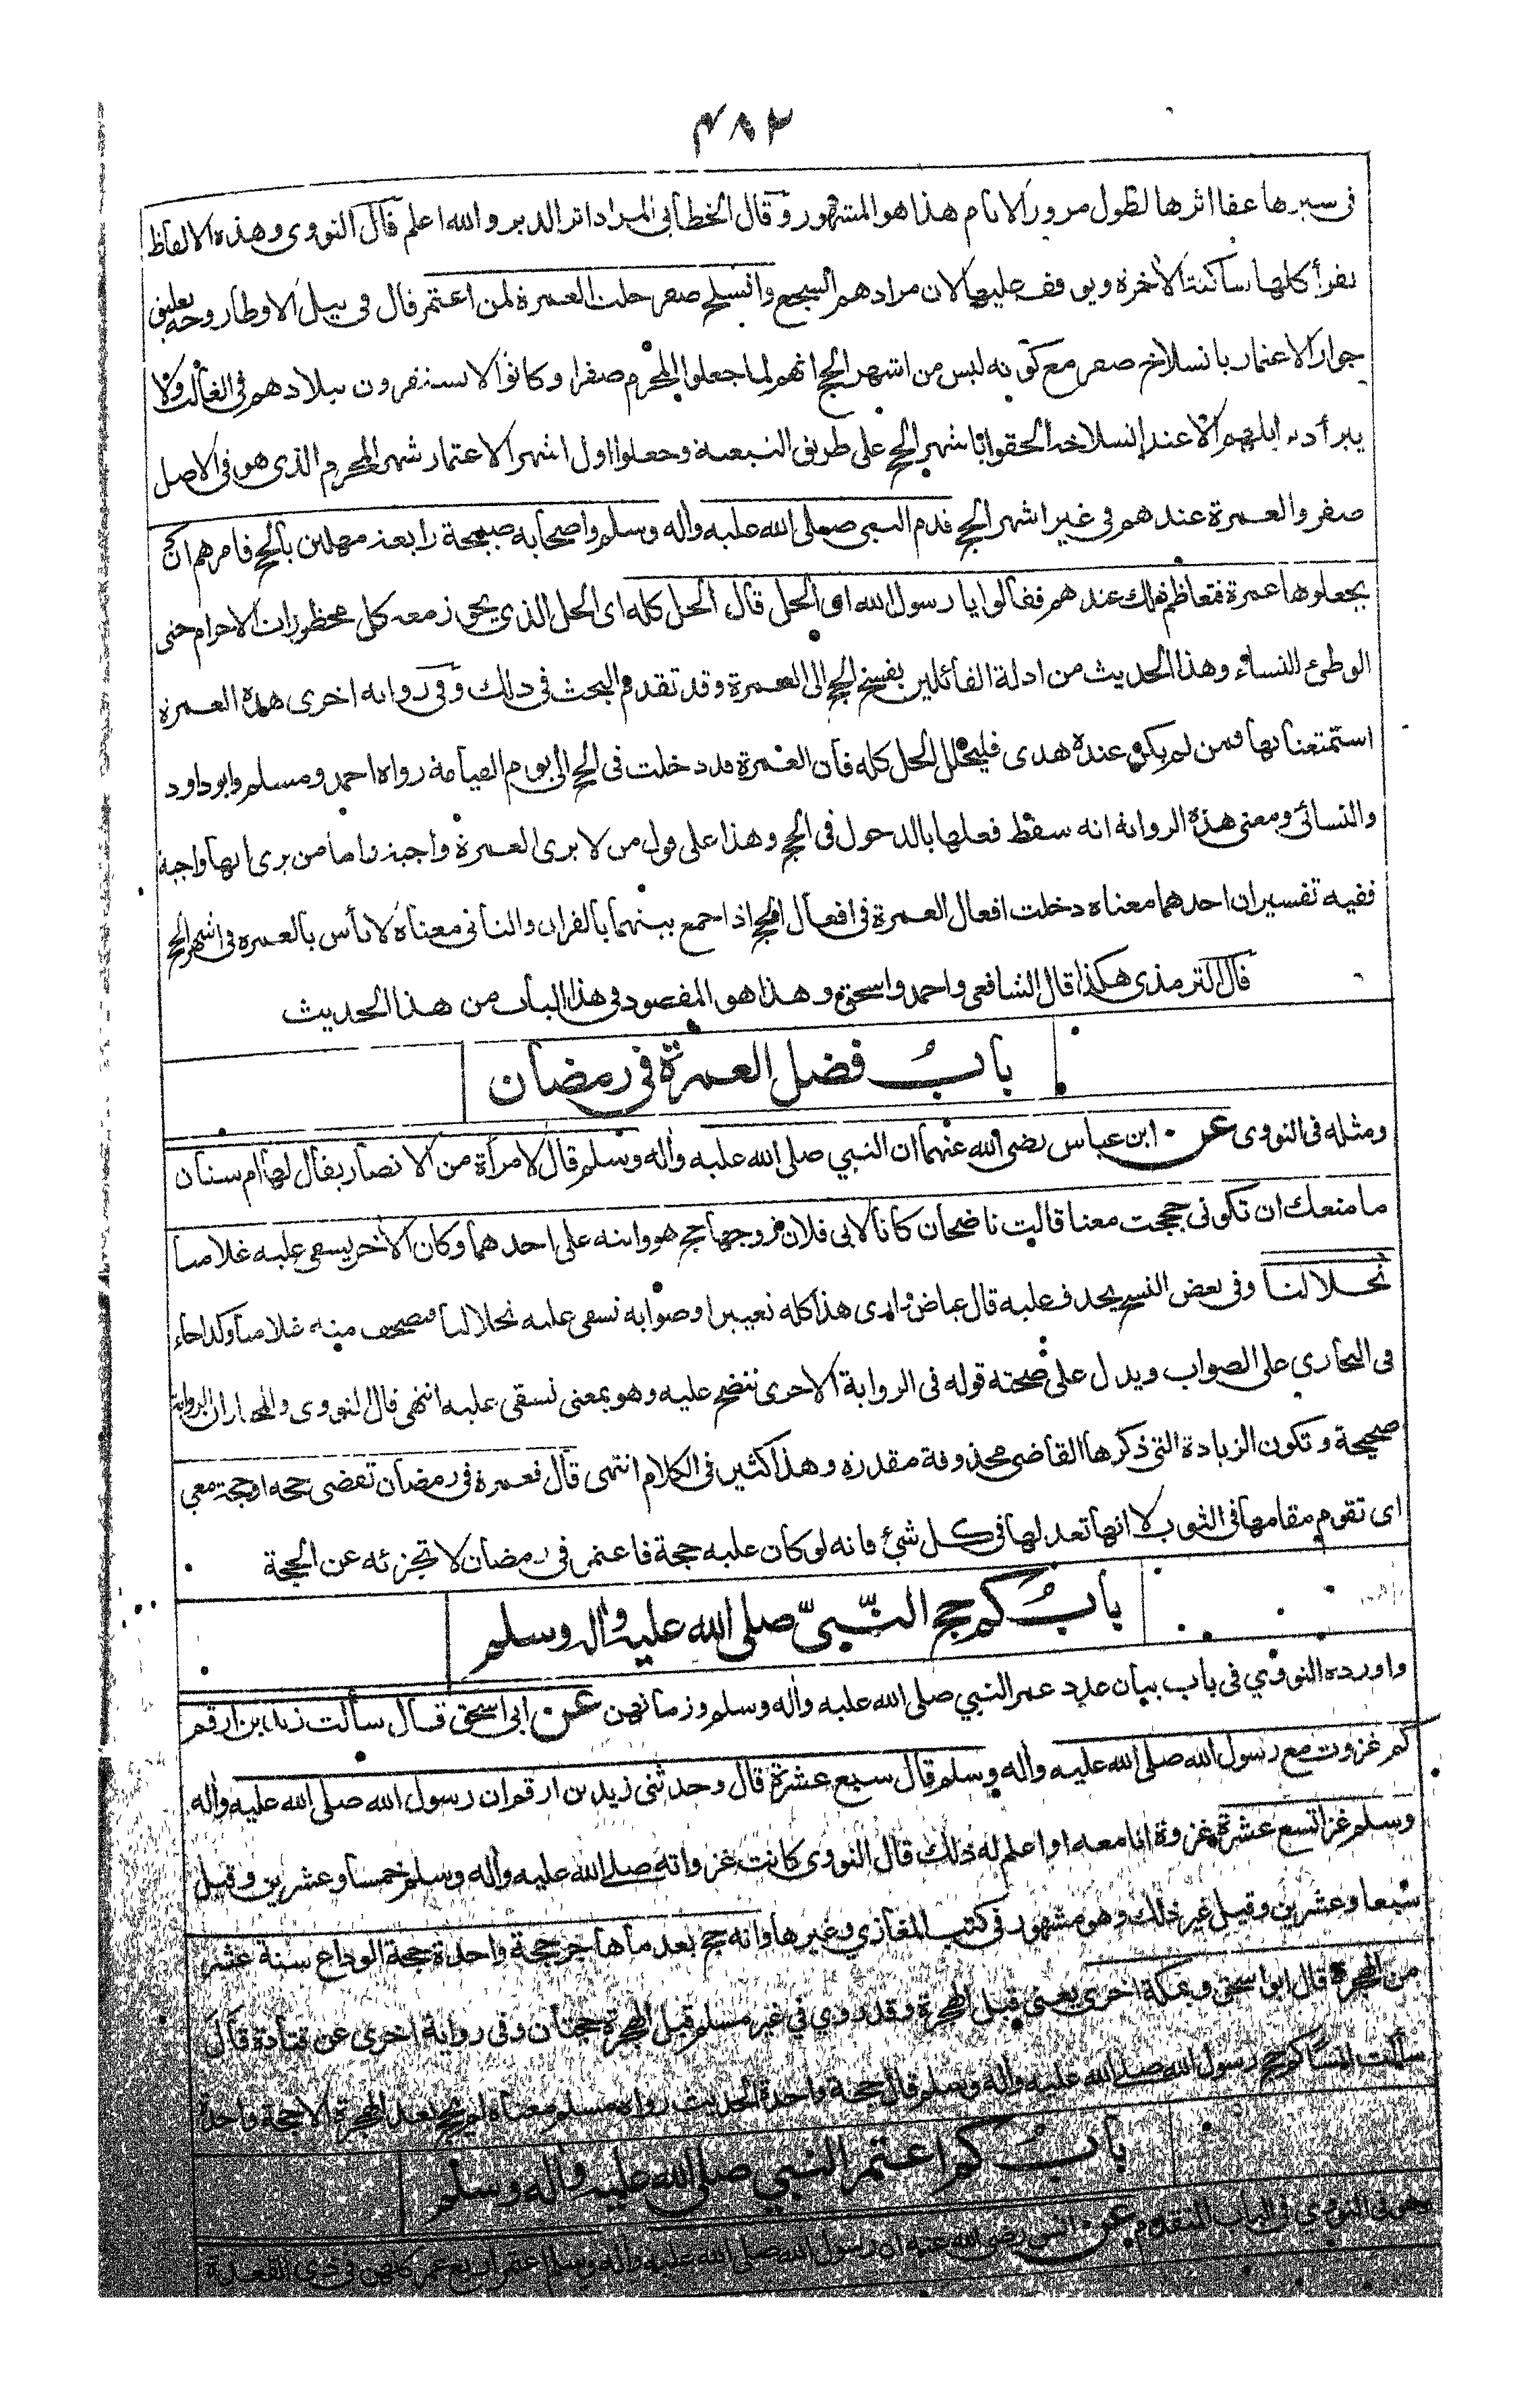 ٤٨٢
في سيرها عفا اثرها لطول مرور الايام هذا هو المشهور وقال الخطابي المراد اثر الدبر والله اعلم قال النووي وهذه الالفاظ
تقرأ كلها ساكنة الأخرة ويوقف عليها لان مرادهم السجع وانسلخ صفر حلت العمرة لمن اعتمر قال في نيل الاوطار وجه تعليق
جواز الاعتمار بانسلاخ صفر مع كونه ليس من اشهر الحج انهم لما جعلوا المحرم صفرا وكانوا لا يستقرون ببلادهم في الغالب ولا
يبرأ دبر ابلهم الا عند انسلاخه الحقوه باشهر الحج على طريق التبعية وجعلوا اول اشهر الاعتمار شهر المحرم الذي هو في الاصل
صفر والعمرة عندهم في غير اشهر الحج فقدم النبي صلى الله عليه وأله وسلم واصحابه صبيحة رابعة مهلين بالحج فامرهم ان
يجعلوها عمرة فتعاظم ذلك عندهم فقالوا يا رسول الله اي الحل قال الحل كله اي الحل الذي يجوز معه كل محظورات الاحرام حتى
الوطئ للنساء وهذا الحديث من ادلة القائلين بفسخ الحج الى العمرة وقد تقدم البحث في ذلك وفي رواية اخرى هذه العمرة
استمتعنا بها فمن لم يكن عنده هدى فليحلل الحل كله فان العمرة قد دخلت في الحج الى يوم القيامة رواه احمد ومسلم وابو داود
والنسائي ومعنى هذه الرواية انه سقط فعلها بالدخول في الحج وهذا على قول من لا يرى العمرة واجبة واما من يرى انها واجبة
ففيه تفسيران احدهما معناه دخلت افعال العمرة في افعال الحج اذا جمع بينهما بالقران والثاني معناه لا بأس بالعمرة في اشهر الحج
قال الترمذي هكذا قال الشافعي واحمد واسحق وهذا هو المقصود في هذا الباب من هذا الحديث
باب فضل العمرة في رمضان
ومثله في النووي عن ابن عباس رضي الله عنهما ان النبي صلى الله عليه وأله وسلم قال لامرأة من الانصار يقال لها ام سنان
ما منعك ان تكوني حججت معنا قالت ناضحان كانا لابي فلان زوجها حج هو وابنه على احدهما وكان الأخر يسقي عليه غلامنا
نخلا لنا وفي بعض النسخ بحذف عليه قال عياض وارى هذا كله تغييرا وصوابه نسقي عليه نخلا لنا فتصحف منه غلامنا وكذا جاء
في البخاري على الصواب ويدل على صحته قوله في الرواية الاخرى ننضح عليه وهو بمعنى نسقي عليه انتهى قال النووي والمختار ان الرواية
صحيحة وتكون الزيادة التي ذكرها القاضي محذوفة مقدرة وهذا كثير في الكلام انتهى قال فعمرة في رمضان تقضي حجة او حجة معي
اي تقوم مقامها في الثواب لا انها تعدلها في كل شئ فانه لو كان عليه حجة فاعتمر في رمضان لا تجزئه عن الحجة
باب كم حج النبي صلى الله عليه وأله وسلم
واورده النووي في باب بيان عدد عمر النبي صلى الله عليه وأله وسلم وزمانهن عن ابي اسحق قال سألت زيد بن ارقم
كم غزوت مع رسول الله صلى الله عليه وأله وسلم قال سبع عشرة قال وحدثني زيد بن ارقم ان رسول الله صلى الله عليه وأله
وسلم غزا تسع عشرة غزوة انا معه او اعلم له ذلك قال النووي كانت غزواته صلى الله عليه وأله وسلم خمسا وعشرين وقيل
سبعا وعشرين وقيل غير ذلك وهو مشهور في كتب المغازي وغيرها وانه حج بعد ما هاجر حجة واحدة حجة الوداع سنة عشر
من الهجرة قال ابو اسحق وبمكة اخرى يعني قبل الهجرة وقد روي في غير مسلم قبل الهجرة حجتان وفي رواية اخرى عن قتادة قال
سألت انسا كم حج رسول الله صلى الله عليه وأله وسلم قال حجة واحدة الحديث رواه مسلم معناه لم يحج بعد الهجرة الا حجة واحدة
باب كم اعتمر النبي صلى الله عليه وأله وسلم
النووي في الباب المتقدم عن انس رضي الله عنه ان رسول الله صلى الله عليه وأله وسلم اعتمر اربع عمر كلهن في ذي القعدة